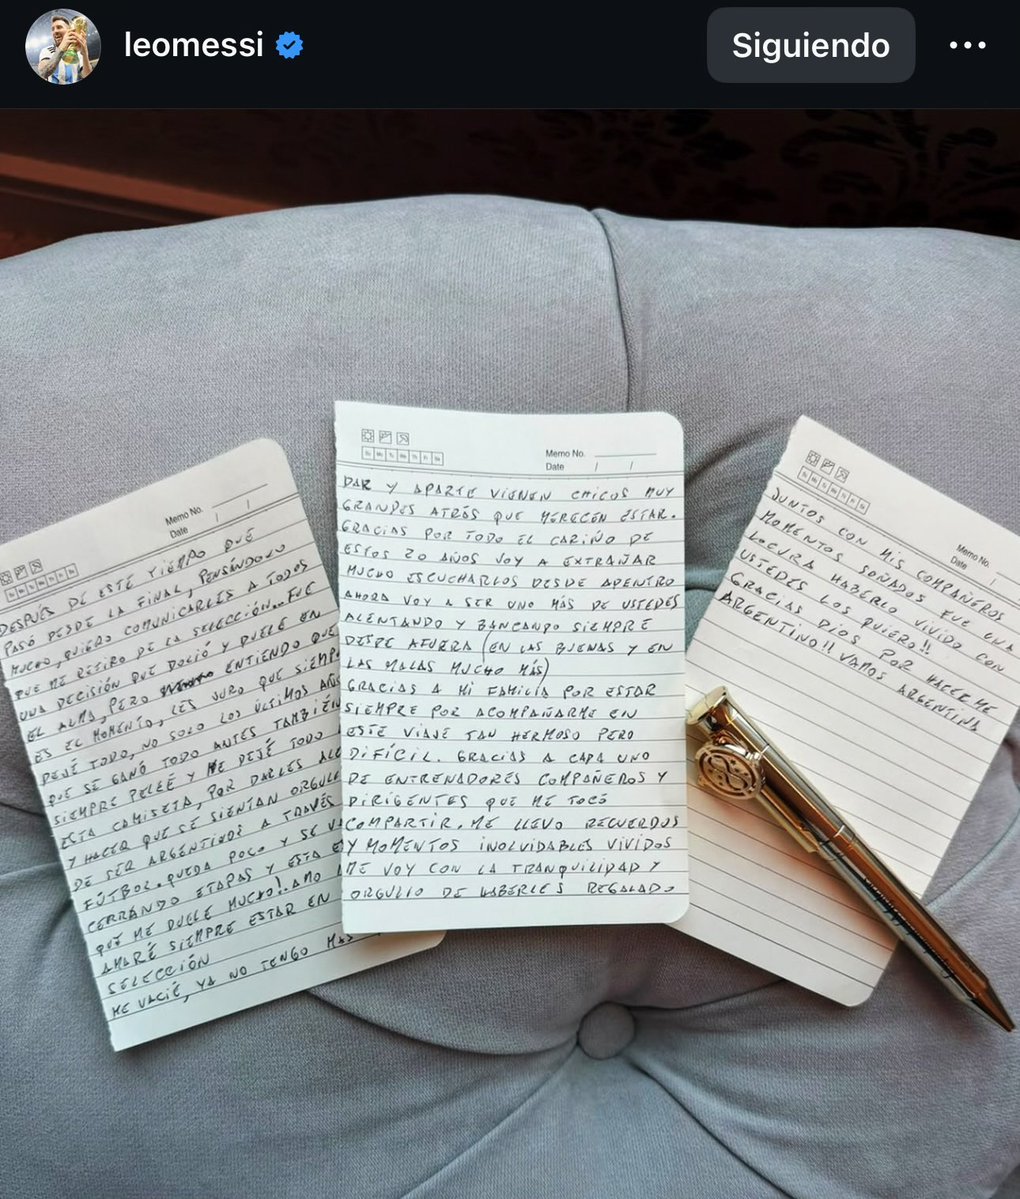 leomessi
Siguiendo
Memo No.
Date / /
DESPUÉS DE ESTE TIEMPO QUE
PASÓ DESDE LA FINAL, PENSÁNDOLO
MUCHO, QUIERO COMUNICARLES A TODOS
QUE ME RETIRO DE LA SELECCIÓN.. FUE
UNA DECISIÓN QUE DOLIÓ Y DUELE EN
EL ALMA, PERO ENTIENDO QUE
ES EL MOMENTO, LES JURO QUE SIEMP
DEJÉ TODO, NO SOLO LOS ÚLTIMOS AÑOS
QUE SE GANÓ TODO ANTES TAMBIÉN
SIEMPRE PELEÉ Y ME DEJÉ TODO
ESTA CAMISETA, POR DARLES ALE
Y HACER QUE SE SIENTAN ORGULL
DE SER ARGENTINOS A TRAVÉS
FÚTBOL. QUEDA POCO Y SE VA
CERRANDO ETAPAS Y ESTA E
QUE ME DUELE MUCHO!. AMO
AMARÉ SIEMPRE ESTAR EN
SELECCIÓN
ME VACIÉ, YA NO TENGO MÁS
Memo No.
Date / /
Su Mo Tu We Th Fr Sa
DAR Y APARTE VIENEN CHICOS MUY
GRANDES ATRÁS QUE MERECEN ESTAR.
GRACIAS POR TODO EL CARIÑO DE
ESTOS 20 AÑOS VOY A EXTRAÑAR
MUCHO ESCUCHARLOS DESDE ADENTRO
AHORA VOY A SER UNO MÁS DE USTEDES
ALENTANDO Y BANCANDO SIEMPRE
DESDE AFUERA (EN LAS BUENAS Y EN
LAS MALAS MUCHO MÁS)
GRACIAS A MI FAMILIA POR ESTAR
SIEMPRE POR ACOMPAÑARME EN
ESTE VIAJE TAN HERMOSO PERO
DIFÍCIL. GRACIAS A CADA UNO
DE ENTRENADORES COMPAÑEROS Y
DIRIGENTES QUE ME TOCÓ
COMPARTIR. ME LLEVO RECUERDOS
Y MOMENTOS INOLVIDABLES VIVIDOS
ME VOY CON LA TRANQUILIDAD Y
ORGULLO DE HABERLES REGALADO
Memo No.
Date /
JUNTOS CON MIS COMPAÑEROS
MOMENTOS SOÑADOS FUE UNA
LOCURA HABERLO VIVIDO CON
USTEDES LOS QUIERO!!
GRACIAS DIOS POR HACERME
ARGENTINO!! VAMOS ARGENTINA